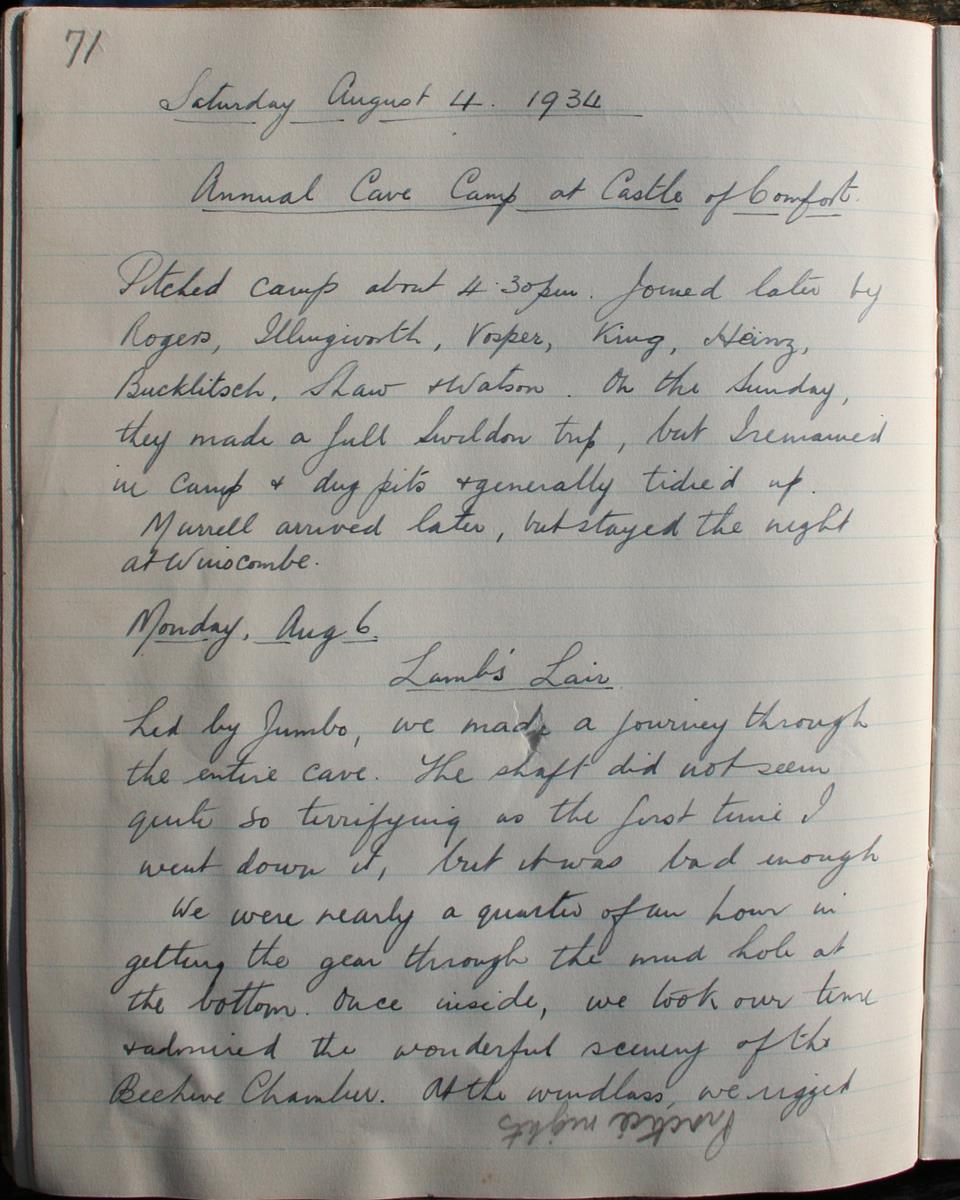 71
Saturday August 4. 1934
Annual Cave Camp at Castle of Comfort.
Pitched camp about 4.30pm. Joined later by
Rogers, Illingworth, Vosper, King, Heinz,
Bucklitsch, Shaw & Watson. On the Sunday,
they made a full Swildon trip, but I remained
in camp & dug pits & generally tidied up.
Murrell arrived later, but stayed the night
at Winscombe.
Monday, Aug 6.
Lamb's Lair
Led by Jumbo, we made a journey through
the entire cave. The shaft did not seem
quite so terrifying as the first time I
went down it, but it was bad enough
We were nearly a quarter of an hour in
getting the gear through the mud hole at
the bottom. Once inside, we took our time
& admired the wonderful scenery of the
Beehive Chamber. At the windlass, we rigged
Practice nights